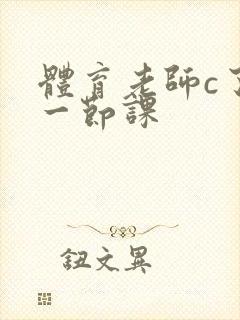 體育老師c了
一節課
鈕文異